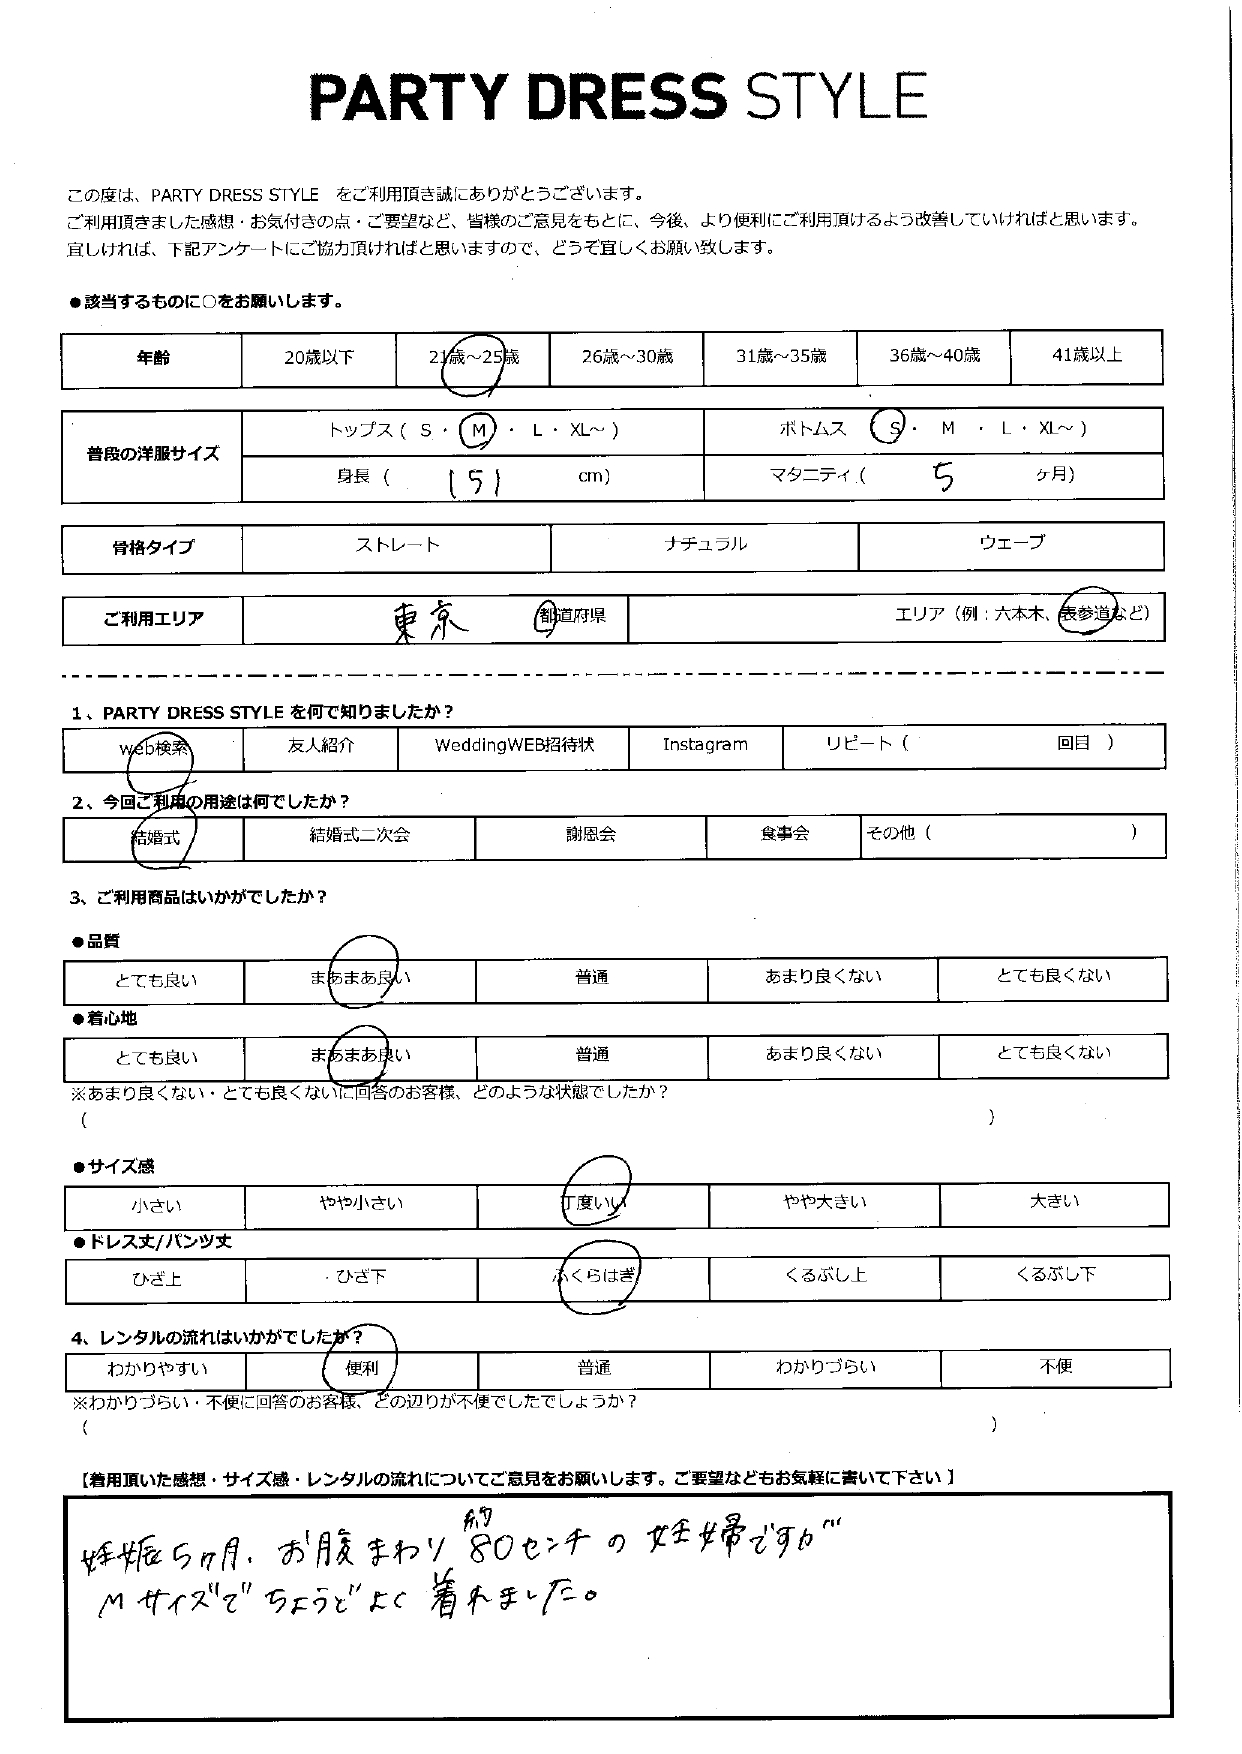 PARTY DRESS STYLE
この度は、PARTY DRESS STYLE をご利用頂き誠にありがとうございます。
ご利用頂きました感想・お気付きの点・ご要望など、皆様のご意見をもとに、今後、より便利にご利用頂けるよう改善していければと思います。
宜しければ、下記アンケートにご協力頂ければと思いますので、どうぞ宜しくお願い致します。
●該当するものに○をお願いします。
年齢 20歳以下 21歳～25歳 26歳～30歳 31歳～35歳 36歳～40歳 41歳以上
普段の洋服サイズ トップス ( S ・ M ・ L ・ XL～ ) ボトムス ( S ・ M ・ L ・ XL～ )
身長 ( 151 cm) マタニティ ( 5 ヶ月)
骨格タイプ ストレート ナチュラル ウェーブ
ご利用エリア 東京 都道府県 エリア（例：六本木、表参道など）
1、PARTY DRESS STYLE を何で知りましたか？
web検索 友人紹介 WeddingWEB招待状 Instagram リピート ( 回目 )
2、今回ご利用の用途は何でしたか？
結婚式 結婚式二次会 謝恩会 食事会 その他 ( )
3、ご利用商品はいかがでしたか？
●品質
とても良い まあまあ良い 普通 あまり良くない とても良くない
●着心地
とても良い まあまあ良い 普通 あまり良くない とても良くない
※あまり良くない・とても良くないに回答のお客様、どのような状態でしたか？
( )
●サイズ感
小さい やや小さい 丁度いい やや大きい 大きい
●ドレス丈/パンツ丈
ひざ上 ・ひざ下 ふくらはぎ くるぶし上 くるぶし下
4、レンタルの流れはいかがでしたか？
わかりやすい 便利 普通 わかりづらい 不便
※わかりづらい・不便に回答のお客様、どの辺りが不便でしたでしょうか？
( )
【着用頂いた感想・サイズ感・レンタルの流れについてご意見をお願いします。ご要望などもお気軽に書いて下さい】
妊娠5ヶ月、お腹まわり約80センチの妊婦ですが
Mサイズでちょうどよく着れました。